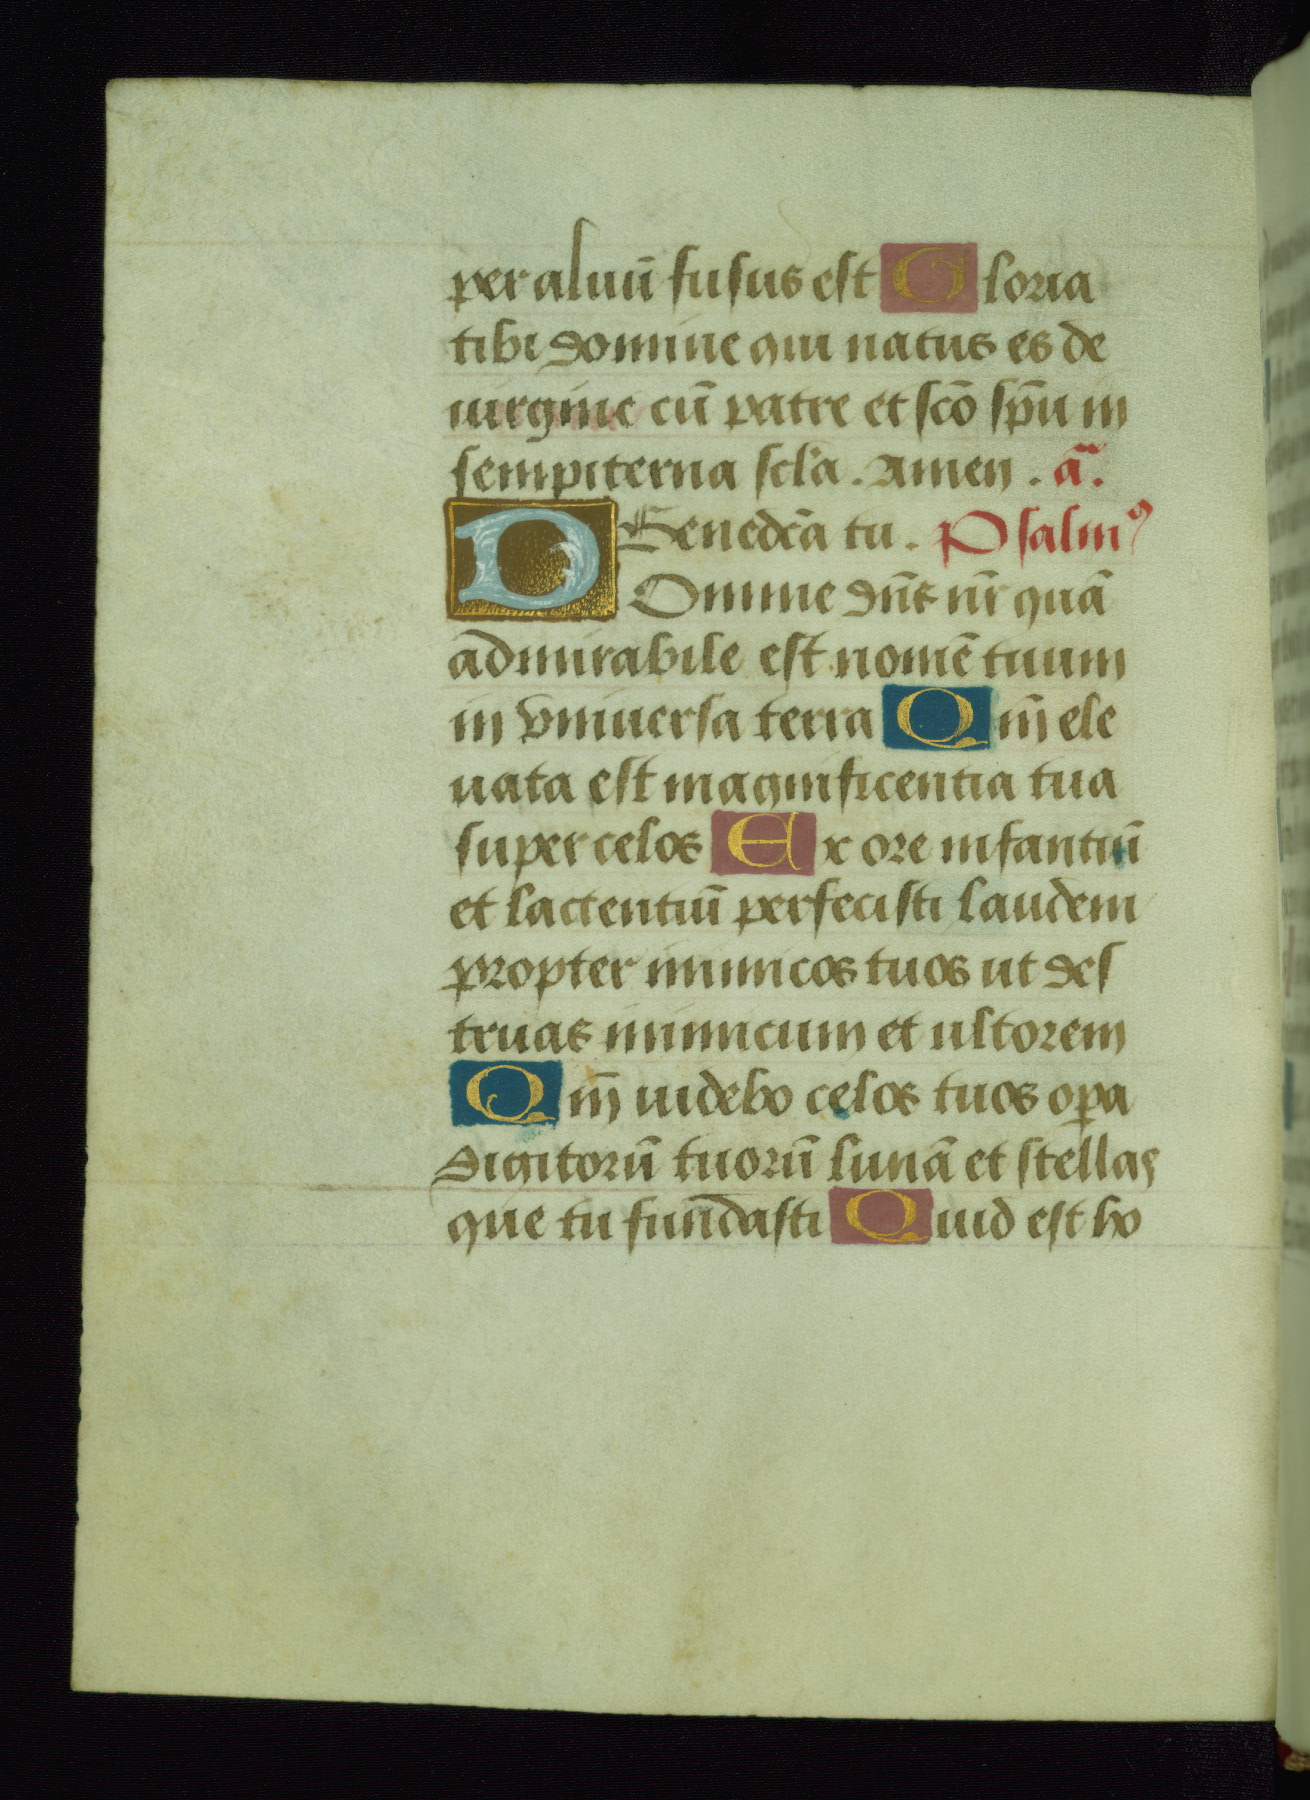 per aluū fusus est Gloria
tibi domine qui natus es de
uirgine cū patre et scō spū in
sempiterna scl'a. Amen. ā.
Benedcā tu. Psalmꝰ
Domine dn̄s nr̄ quā
admirabile est nomē tuum
in vniuersa terra Qm̄ ele
uata est magnificentia tua
super celos Ex ore infantiū
et lactentiū perfecisti laudem
propter inimicos tuos ut des
truas inimicum et ultorem
Qm̄ uidebo celos tuos oꝑa
digitorū tuorū lunā et stellas
que tu fundasti Quid est ho